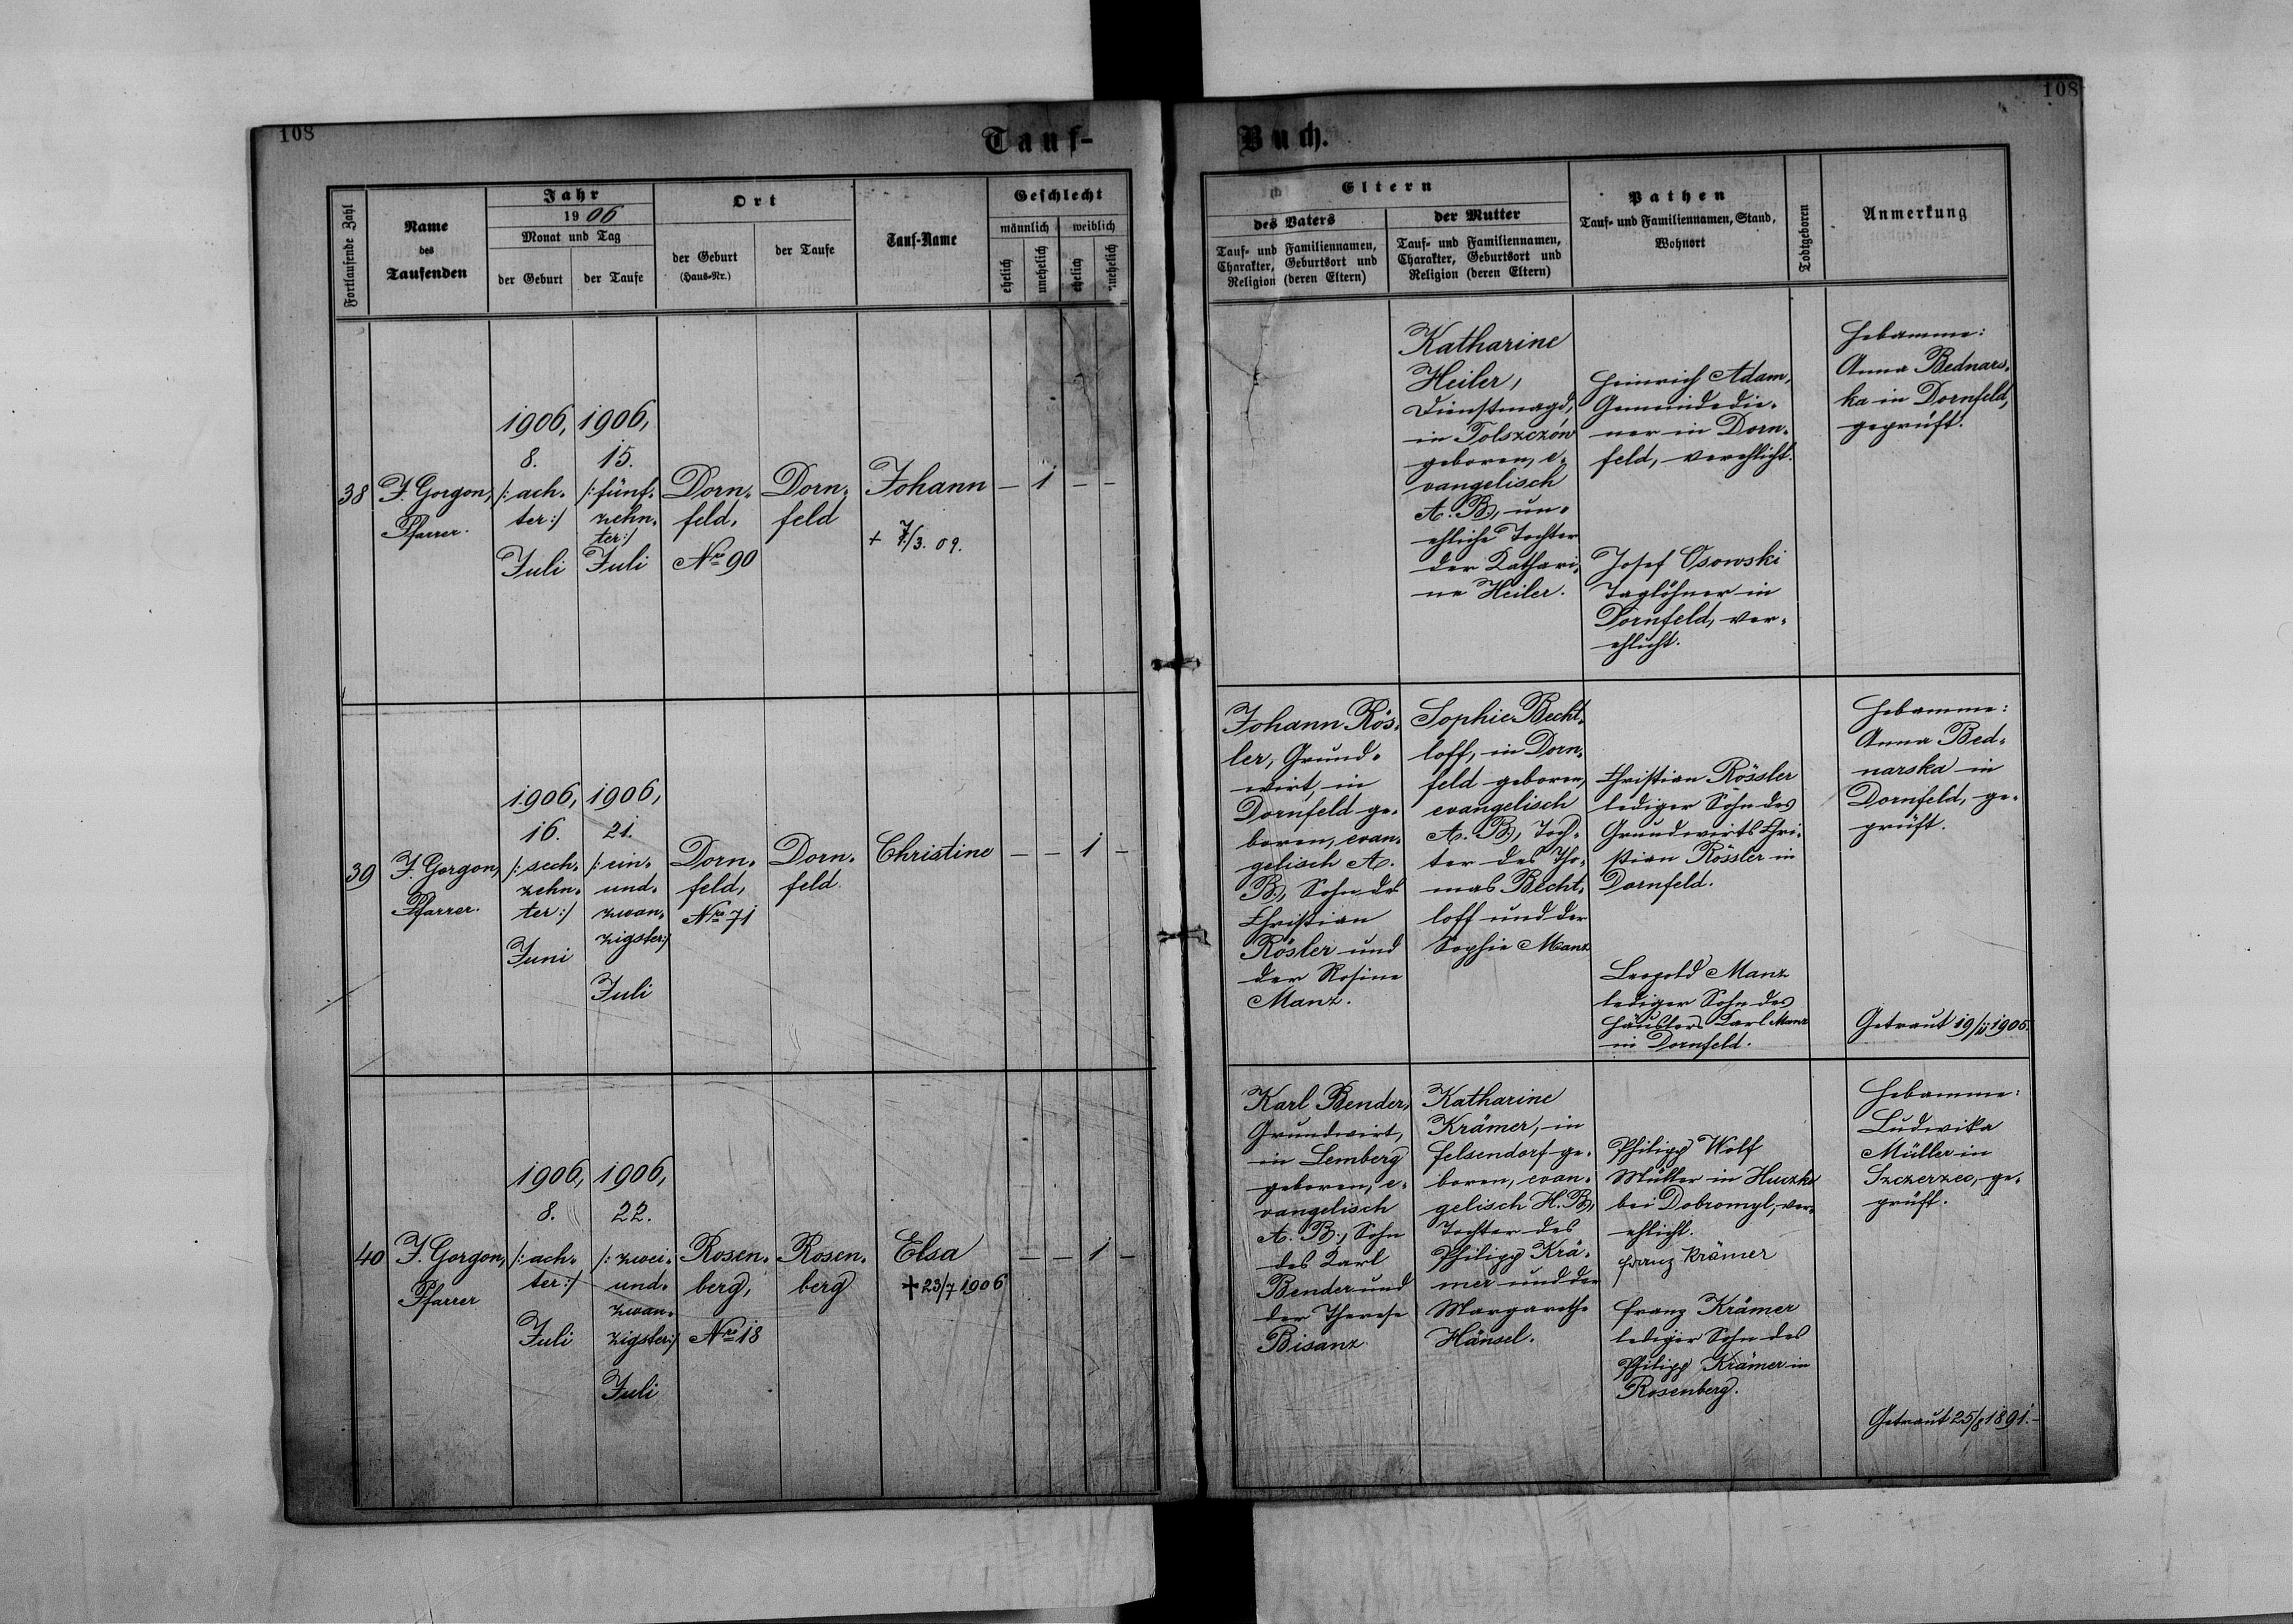 108
108
Tauf-
Buch.
Fortlaufende Zahl
Name
des
Taufenden
Jahr
1906
Monat und Tag
der Geburt
der Taufe
Ort
der Geburt
(Haus-Nr.)
der Taufe
Tauf-Name
Geschlecht
männlich
weiblich
ehelich
unehelich
ehelich
unehelich
Eltern
des Vaters
Tauf- und Familiennamen,
Charakter, Geburtsort und
Religion (deren Eltern)
der Mutter
Tauf- und Familiennamen,
Charakter, Geburtsort und
Religion (deren Eltern)
Pathen
Tauf- und Familiennamen, Stand,
Wohnort
Todtgeboren
Anmerkung
38
F. Gorgon,
Pfarrer.
1906,
8.
/: ach-
ter :/
Juli
1906,
15.
/: fünf-
zehn-
ter :/
Juli
Dorn-
feld,
Nro 90
Dorn-
feld
Johann
+ 7/3. 09.
— 1 — —
Katharine
Heiler,
Dienstmagd,
in Tolszczów
geboren, e-
vangelisch
A. B., un-
ehliche Tochter
der Kathari-
ne Heiler.
Heinrich Adam,
Gemeindedie-
ner in Dorn-
feld, verehlicht.
Josef Osowski
Taglöhner in
Dornfeld, ver-
ehlicht.
Hebamme:
Anna Bednars-
ka in Dornfeld,
geprüft.
39
F. Gorgon,
Pfarrer.
1906,
16.
/: sech-
zehn-
ter :/
Juni
1906,
21.
/: ein-
und-
zwan-
zigster :/
Juli
Dorn-
feld,
Nro 71
Dorn-
feld.
Christine
— — 1 —
Johann Rös-
ler, Grund-
wirt, in
Dornfeld ge-
boren, evan-
gelisch A.
B., Sohn des
Christian
Rösler und
der Rosine
Manz.
Sophie Becht-
loff, in Dorn-
feld geboren,
evangelisch
A. B., Toch-
ter des Tho-
mas Becht-
loff und der
Sophie Manz
Christian Rössler
lediger Sohn des
Grundwirts Chri-
stian Rössler in
Dornfeld.
Leopold Manz
lediger Sohn des
Häuslers Karl Manz
in Dornfeld.
Hebamme:
Anna Bed-
narska in
Dornfeld, ge-
prüft.
Getraut 19/ 1905.
40
F. Gorgon,
Pfarrer
1906,
8.
/: ach-
ter :/
Juli
1906,
22.
/: zwei-
und-
zwan-
zigster :/
Juli
Rosen-
berg,
Nro 18
Rosen-
berg
Elsa
+ 23/7 1906
— — 1 —
Karl Bender,
Grundwirt,
in Lemberg
geboren, e-
vangelisch
A. B., Sohn
des Karl
Bender und
der Therese
Bisanz.
Katharine
Krämer, in
Felsendorf ge-
boren, evan-
gelisch H. B.,
Tochter des
Philipp Krä-
mer und der
Margarethe
Hänsel.
Philipp Wolf
Müller in Huczko
bei Dobromyl, ver-
ehlicht.
Franz Krämer
Franz Krämer
lediger Sohn des
Philipp Krämer in
Rosenberg.
Hebamme:
Ludwika
Müller in
Szczerzec, ge-
prüft.
Getraut 25/8 1891.—